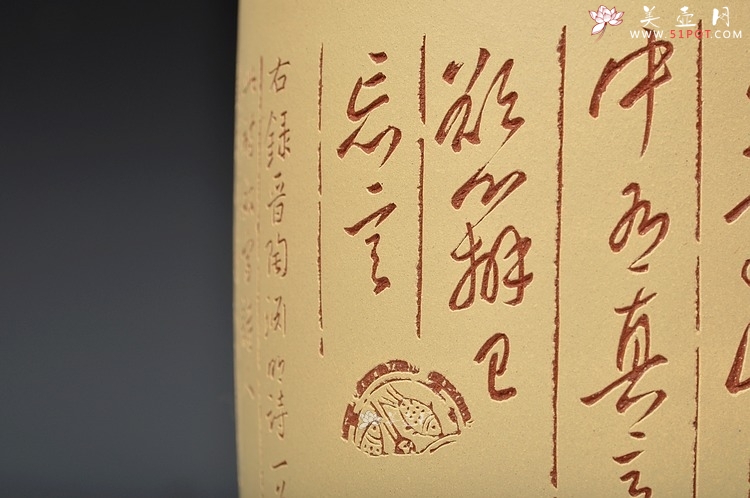 美壶网
WWW.51POT.COM
中有真意
欲辨已
忘言
右錄晉陶淵明詩一